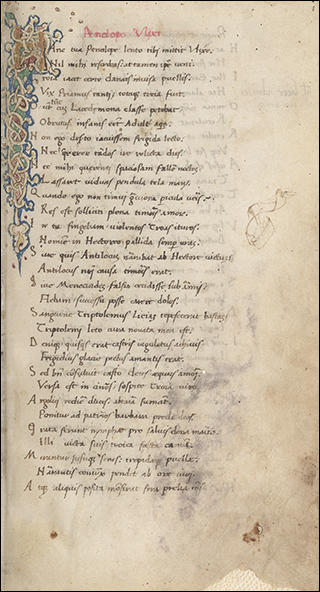 Penelope Vlixi
Hanc tua Penelope lento tibi mittit Vlixe
Nil mihi rescribas: at tamen ipse veni
Troia iacet certe danais inuisa puellis
Vix Priamus tanti: totaq; troia fuit
cum Lacedemona classe petebat
Obrutus insanis eēt Adulter aqs
Non ego deserto iacuissem frigida lecto
Nec quererer tardos ire relicta dies
Nec mihi querenti spatiosam fallere noctē
Lassaret viduas pendula tela manus
Quando ego non timui grauiora picula veris
Res est solliciti plena timoris amor
In te fingebam violentos Troas ituros
Nomine in Hectoreo pallida semp eram
Siue quis Antilocum narrabat ab Hectore victum
Antilocus nr̄i causa timoris erat
Siue falsis cecidisse sub armis
Flebam successu posse carere dolos
Sanguine Triptolemus Liciam tepefecerat hastam
Triptolemi leto cura nouata mea est
Deniq; quisquis erat castris iugulatus achiuis
Frigidius glacie pectus amantis erat
Sed bn̄ consuluit casto deus equus amori
Versa est in cineres: sospite Troia viro
Argolici rediere duces: altaria fumāt
Ponitur ad patrios barbara preda deos
Grata ferunt nymphae pro saluis dona maritis
Illi victa suis troica facta canunt
Mirantur iustiq; senes: trepideq; puellae
Narrantis coniunx pendet ab ore viri
Atq; aliquis posita monstrat fera prelia mensa